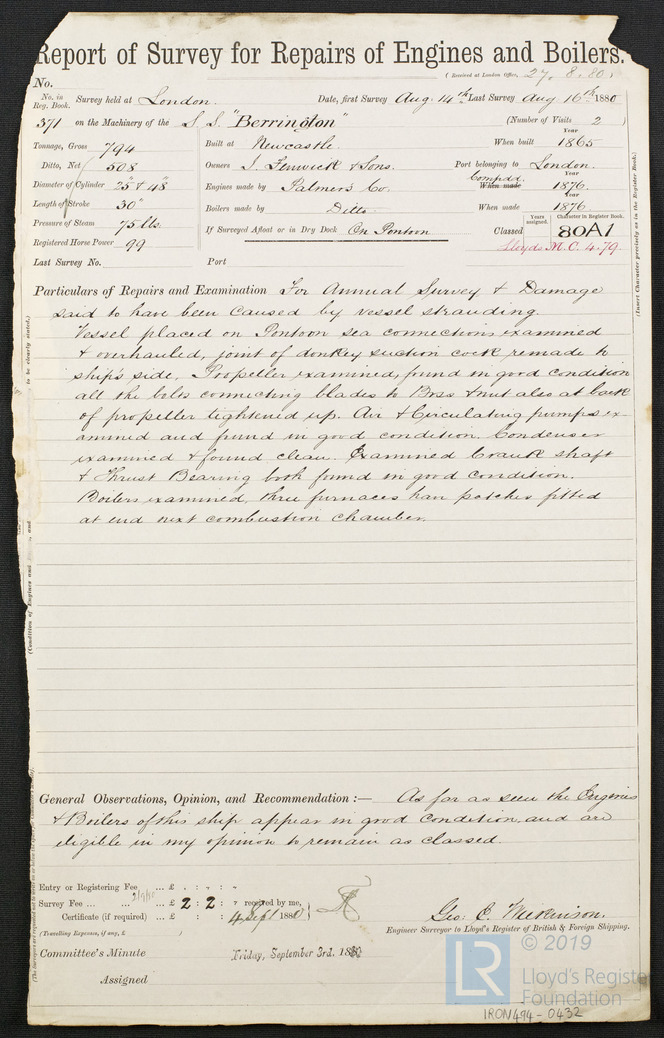 Report of Survey for Repairs of Engines and Boilers.
(Received at London Office, 27. 8. 80.
No.
No. in Reg. Book. Survey held at London. Date, first Survey Aug: 14th Last Survey Aug 16th 1880
371 on the Machinery of the S. S. "Berrington" (Number of Visits 2 )
Tonnage, Gross 794 Built at Newcastle. When built Year 1865
Ditto, Net 508 Owners J. Fenwick & Sons. Port belonging to London.
Diameter of Cylinder 25" & 48" Engines made by Palmers Co. Compdd. When made Year 1876.
Length of Stroke 30" Boilers made by Ditto. When made Year 1876
Pressure of Steam 75 lbs. If Surveyed Afloat or in Dry Dock On Pontoon Classed Years assigned. Character in Register Book. 80A1
Registered Horse Power 99 Lloyds M.C. 4.79.
Last Survey No. Port
Particulars of Repairs and Examination For Annual Survey & Damage
said to have been caused by vessel stranding.
Vessel placed on Pontoon sea connections examined
& overhauled, joint of donkey suction cock remade to
ship's side. Propeller examined, found in good condition
all the bolts connecting blades to Boss & nut also at back
of propeller tightened up. Air & Circulating pumps ex-
amined and found in good condition. Condenser
examined & found clean. Examined Crank shaft
& Thrust Bearing both found in good condition.
Boilers examined, three furnaces have patches fitted
at end next combustion chamber.
(Insert Character precisely as in the Register Book.)
to be clearly stated.)
(Condition of Engines and
General Observations, Opinion, and Recommendation :— As far as seen the Engines
& Boilers of this ship appear in good condition, and are
eligible in my opinion to remain as classed.
Entry or Registering Fee ... £ : :
Survey Fee ... ... ... £ 2 : 2 : " received by me,
Certificate (if required) ... £ : : 4 Sept 1880
(Travelling Expenses, if any, £ )
Geo: E. Wilkinson.
Engineer Surveyor to Lloyd's Register of British & Foreign Shipping.
Committee's Minute Friday, September 3rd. 1880
Assigned
LR © 2019
Lloyd's Register
Foundation
IRON494-0432